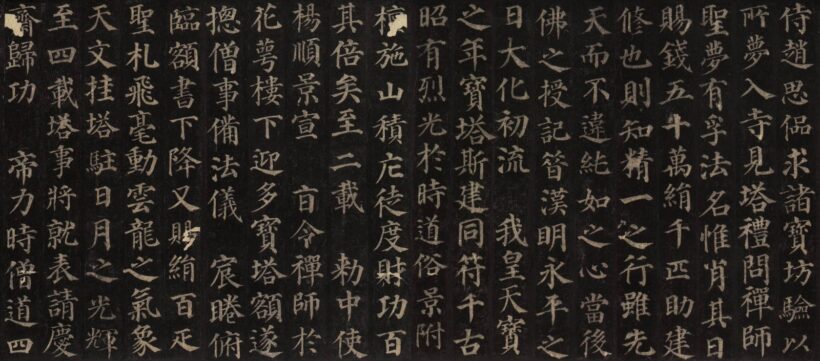 侍趙思偘求諸寶坊驗以
所夢入寺見塔禮問禪師
聖夢有孚法名惟肖其日
賜錢五十萬絹千匹助建
修也則知精一之行雖先
天而不違純如之心當後
佛之授記昔漢明永平之
日大化初流 我皇天寶
之年寶塔斯建同符千古
昭有烈光於時道俗景附
檀施山積庀徒度財功百
其倍矣至二載 勑中使
楊順景宣 旨令禪師於
花萼樓下迎多寶塔額遂
摠僧事備法儀 宸睠俯
臨額書下降又賜絹百疋
聖札飛毫動雲龍之氣象
天文挂塔駐日月之光輝
至四載塔事將就表請慶
齋歸功 帝力時僧道四